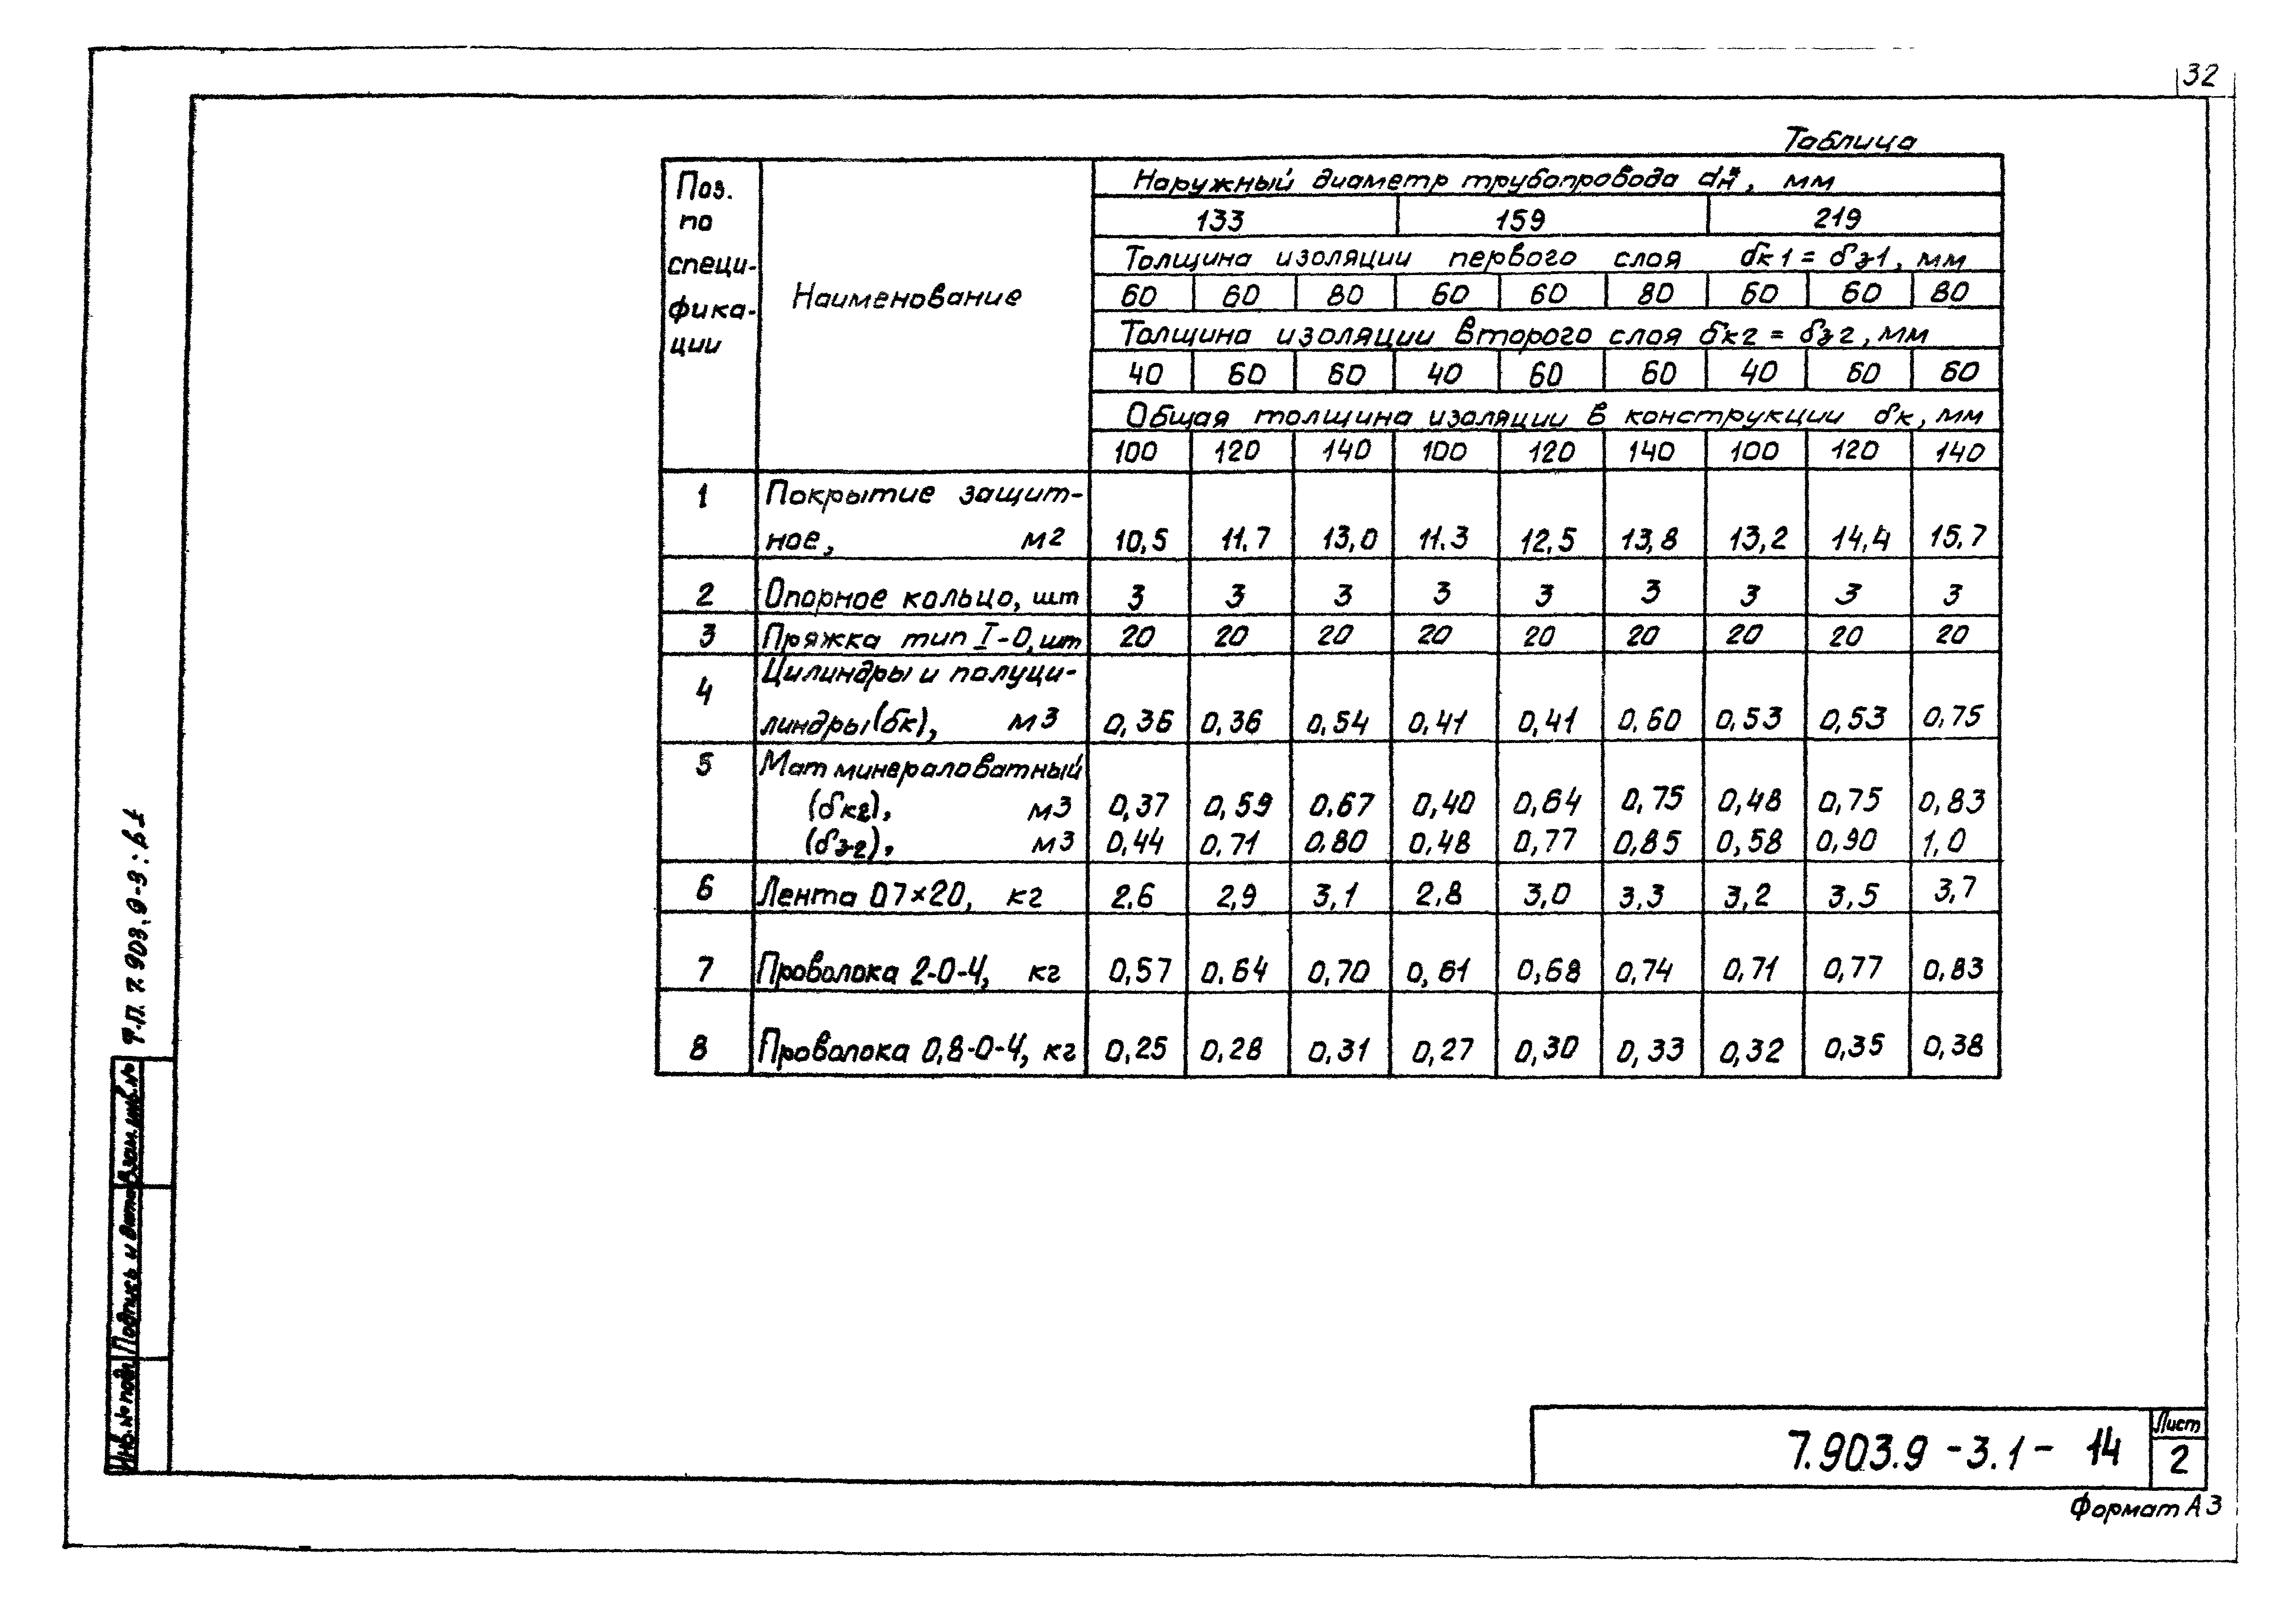 32
Таблица
Поз. по специ- фика- ции
Наименование
Наружный диаметр трубопровода dн*, мм
133 159 219
Толщина изоляции первого слоя δк1 = δз1, мм
60 60 80 60 60 80 60 60 80
Толщина изоляции второго слоя δк2 = δз2, мм
40 60 60 40 60 60 40 60 60
Общая толщина изоляции в конструкции δк, мм
100 120 140 100 120 140 100 120 140
1 Покрытие защит-
ное, м2 10,5 11.7 13,0 11.3 12,5 13,8 13,2 14,4 15,7
2 Опорное кольцо, шт 3 3 3 3 3 3 3 3 3
3 Пряжка тип I-0, шт 20 20 20 20 20 20 20 20 20
4 Цилиндры и полуци-
линдры (δк), м3 0,36 0,36 0,54 0,41 0,41 0,60 0,53 0,53 0,75
5 Мат минераловатный
(δк2), м3 0,37 0,59 0,67 0,40 0,64 0,75 0,48 0,75 0,83
(δз2), м3 0,44 0,71 0,80 0,48 0,77 0,85 0,58 0,90 1,0
6 Лента 07×20, кг 2.6 2,9 3,1 2,8 3,0 3.3 3,2 3,5 3,7
7 Проволока 2-0-4, кг 0,57 0.64 0,70 0,61 0,68 0,74 0,71 0,77 0,83
8 Проволока 0,8-0-4, кг 0,25 0,28 0,31 0,27 0,30 0,33 0,32 0,35 0,38
Т.П. 7.903.9-3: в.1
Взам. инв. №
Подпись и дата
Инв. № подл.
7.903.9 -3.1- 14
Лист
2
Формат А3